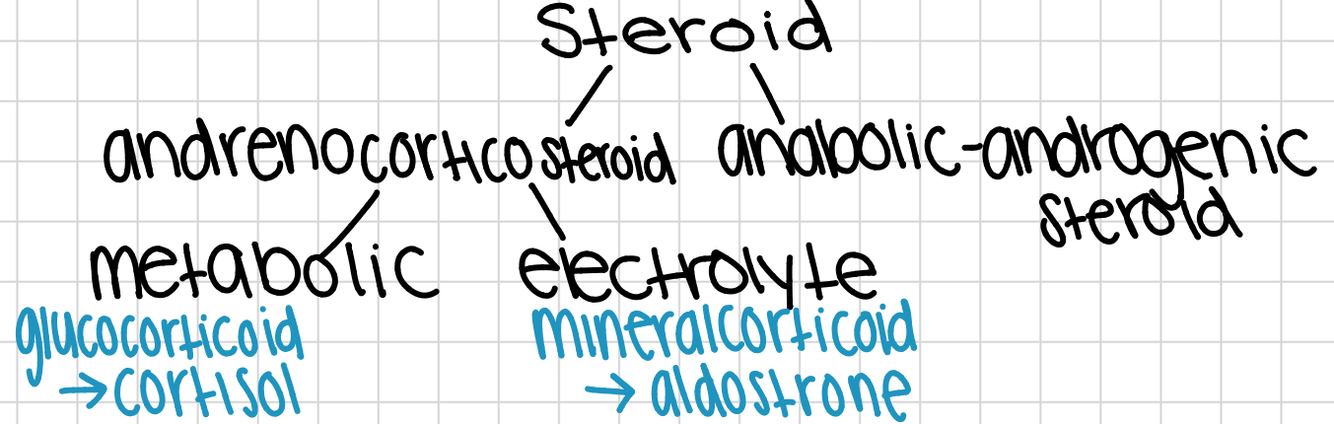 Steroid
andrenocorticosteroid anabolic-androgenic
steroid
metabolic electrolyte
glucocorticoid mineralcorticoid
→cortisol → aldostrone